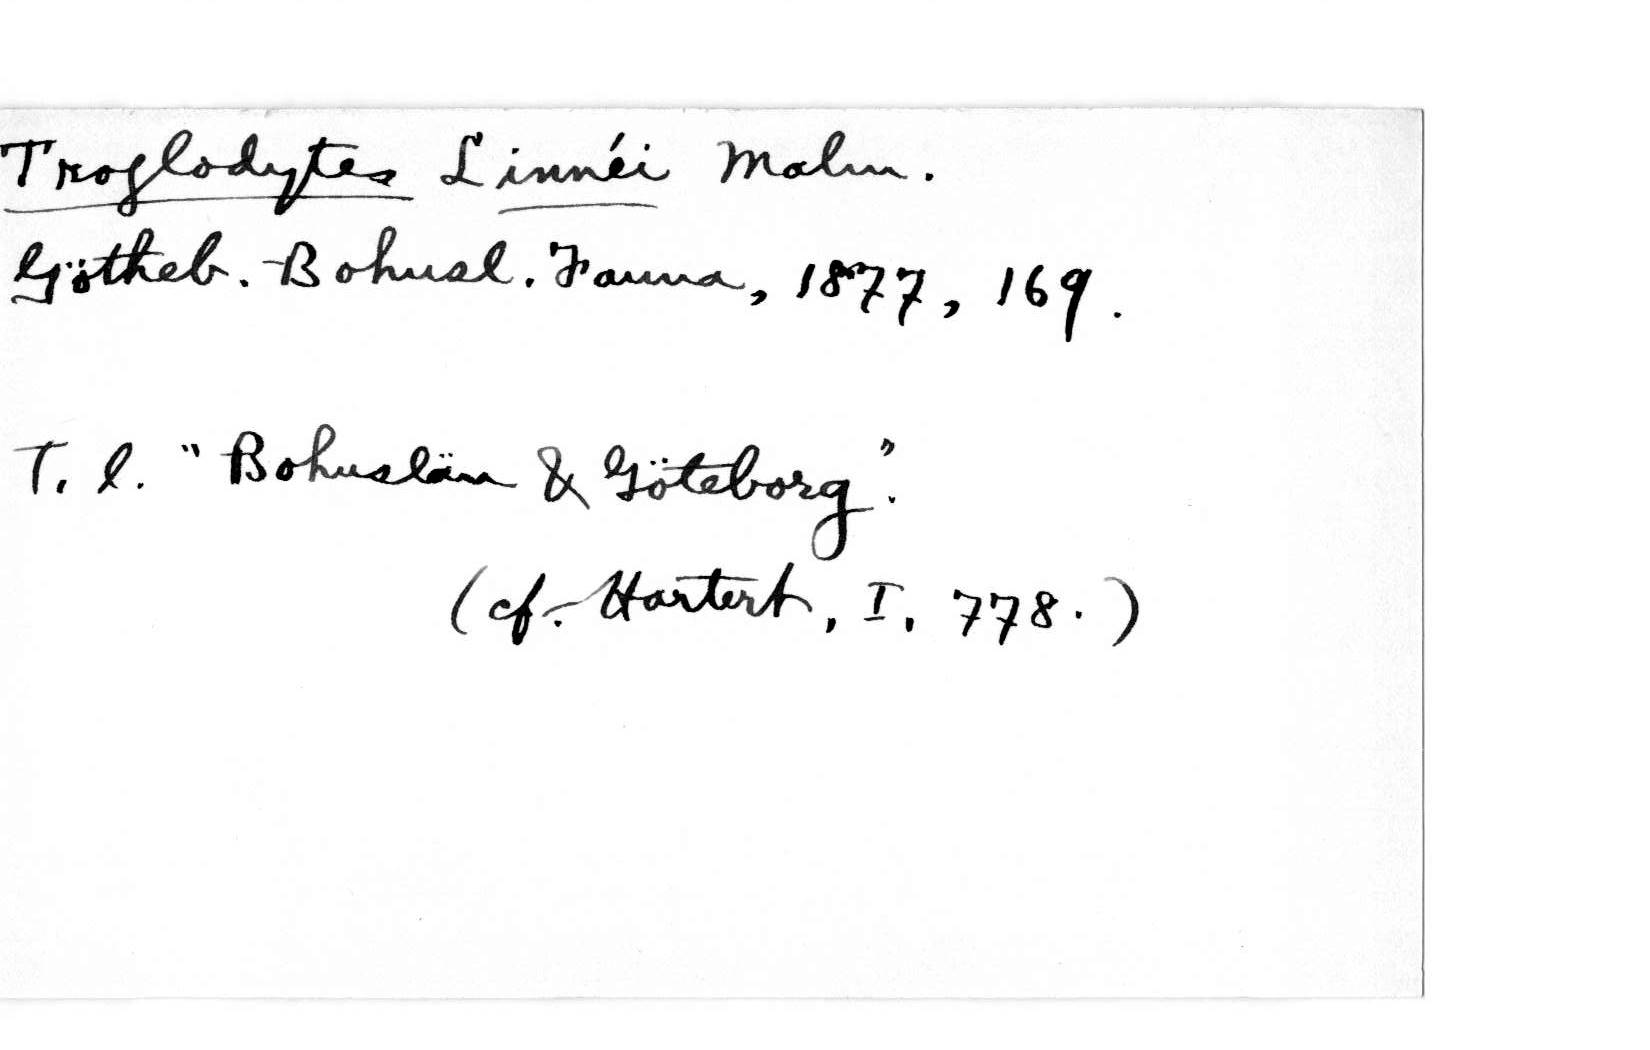 Troglodytes Linnéi Malm.
Götheb.-Bohusl. Fauna, 1877, 169.
T. l. "Bohuslän & Göteborg".
(cf. Hartert, I, 778.)